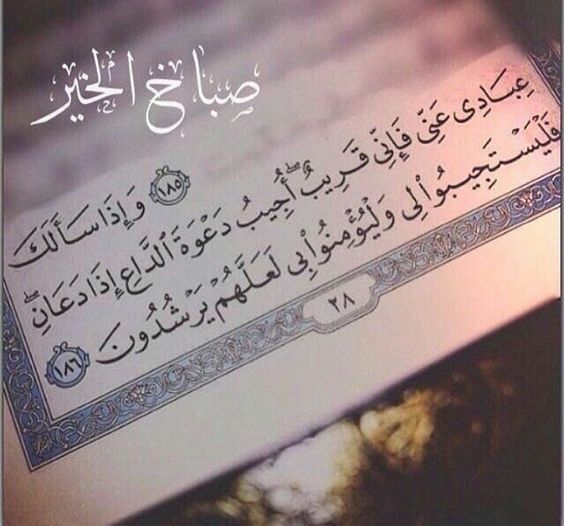 صباخ الخير
١٨٥ وَإِذَا سَأَلَكَ
عِبَادِى عَنِّى فَإِنِّى قَرِيبٌ ۖ أُجِيبُ دَعْوَةَ ٱلدَّاعِ إِذَا دَعَانِ ۖ
فَلْيَسْتَجِيبُوا۟ لِى وَلْيُؤْمِنُوا۟ بِى لَعَلَّهُمْ يَرْشُدُونَ ١٨٦
٢٨